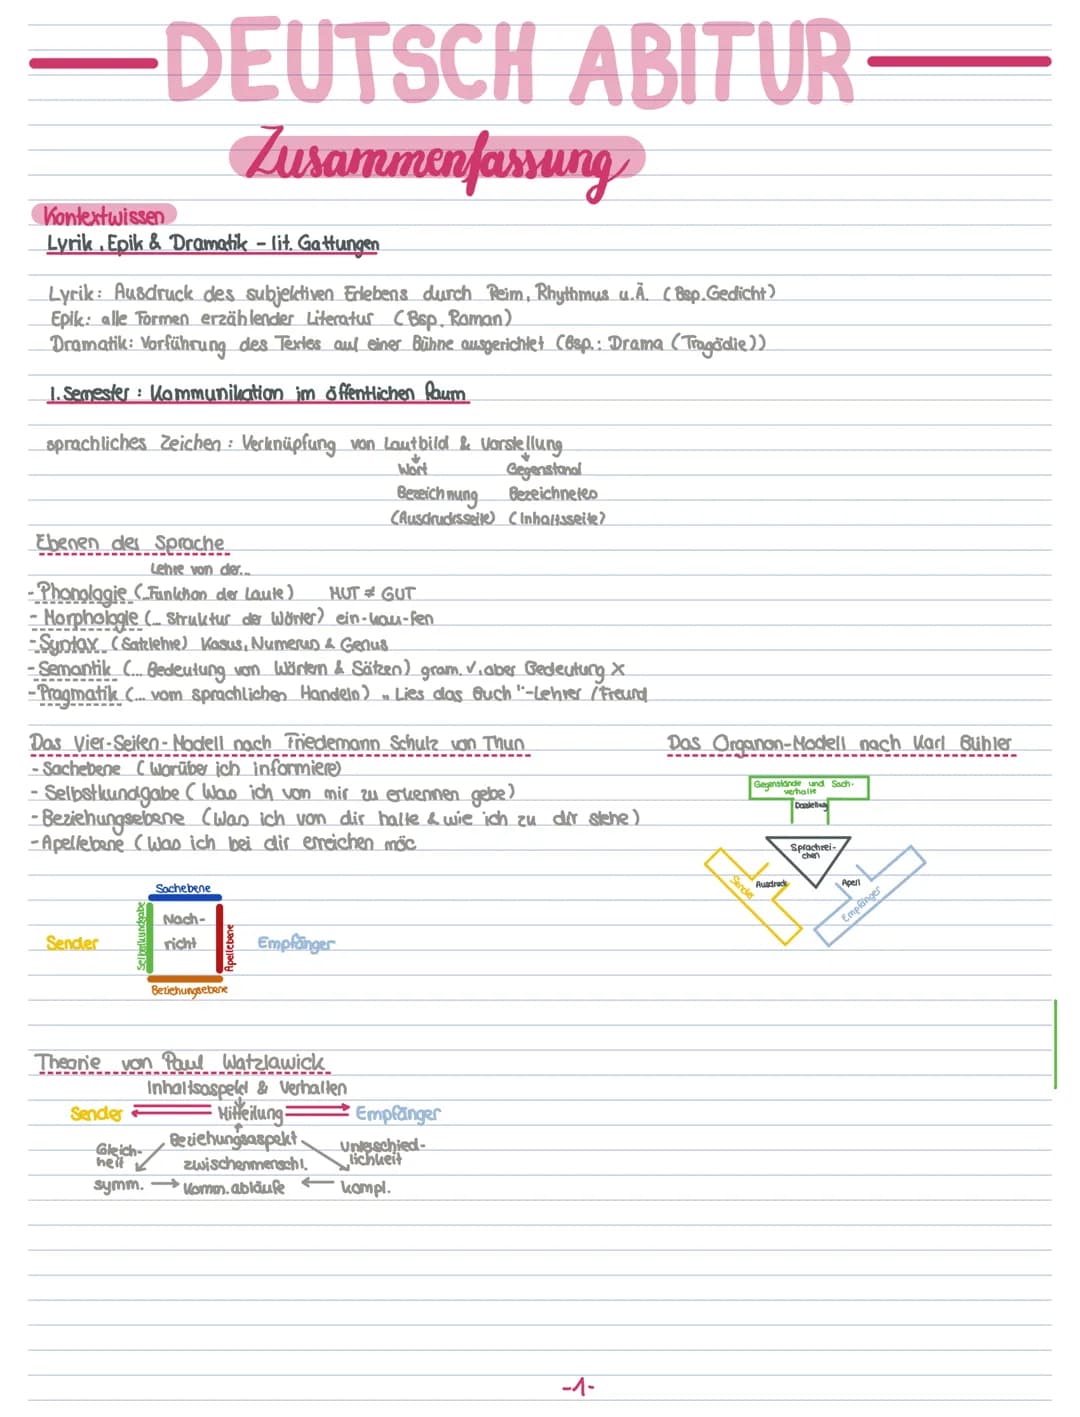 DEUTSCH ABITUR
Zusammenfassung
Kontextwissen
Lyrik, Epik & Dramatik - lit. Gattungen
Lyrik: Ausdruck des subjektiven Erlebens durch Reim, Rhythmus u.Ä. (Bsp. Gedicht)
Epik: alle Formen erzählender Literatur (Bsp. Roman)
Dramatik: Vorführung des Textes auf einer Bühne ausgerichtet (Bsp.: Drama (Tragödie))
1. Semester: Kommunikation im öffentlichen Raum
sprachliches Zeichen: Verknüpfung von Lautbild & Vorstellung
Wort Gegenstand
Bezeichnung Bezeichnetes
(Ausdrucksseite) (Inhaltsseite)
Ebenen der Sprache
Lehre von der...
- Phonologie (...Funktion der Laute) HUT ≠ GUT
- Morphologie (... Struktur der Wörter) ein-kau-fen
- Syntax (Satzlehre) Kasus, Numerus & Genus
- Semantik (... Bedeutung von Wörtern & Sätzen) gram. ✓, aber Bedeutung X
- Pragmatik (... vom sprachlichen Handeln) „Lies das Buch" - Lehrer / Freund
Das Vier-Seiten-Modell nach Friedemann Schulz von Thun
- Sachebene (Worüber ich informiere)
- Selbstkundgabe (Was ich von mir zu erkennen gebe)
- Beziehungsebene (Was ich von dir halte & wie ich zu dir stehe)
- Apellebene (Was ich bei dir erreichen möc
Sachebene
Selbstkundgabe
Nach-
richt
Apellebene
Sender
Empfänger
Beziehungsebene
Das Organon-Modell nach Karl Bühler
Gegenstände und Sach-
verhalte
Darstellung
Sprachzei-
chen
Sender
Ausdruck
Apell
Empfänger
Theorie von Paul Watzlawick
Inhaltsaspekt & Verhalten
Sender Mitteilung Empfänger
Beziehungsaspekt
Gleich-
heit
zwischenmenschl.
Unterschied-
lichkeit
symm. Komm.abläufe kompl.
-1-